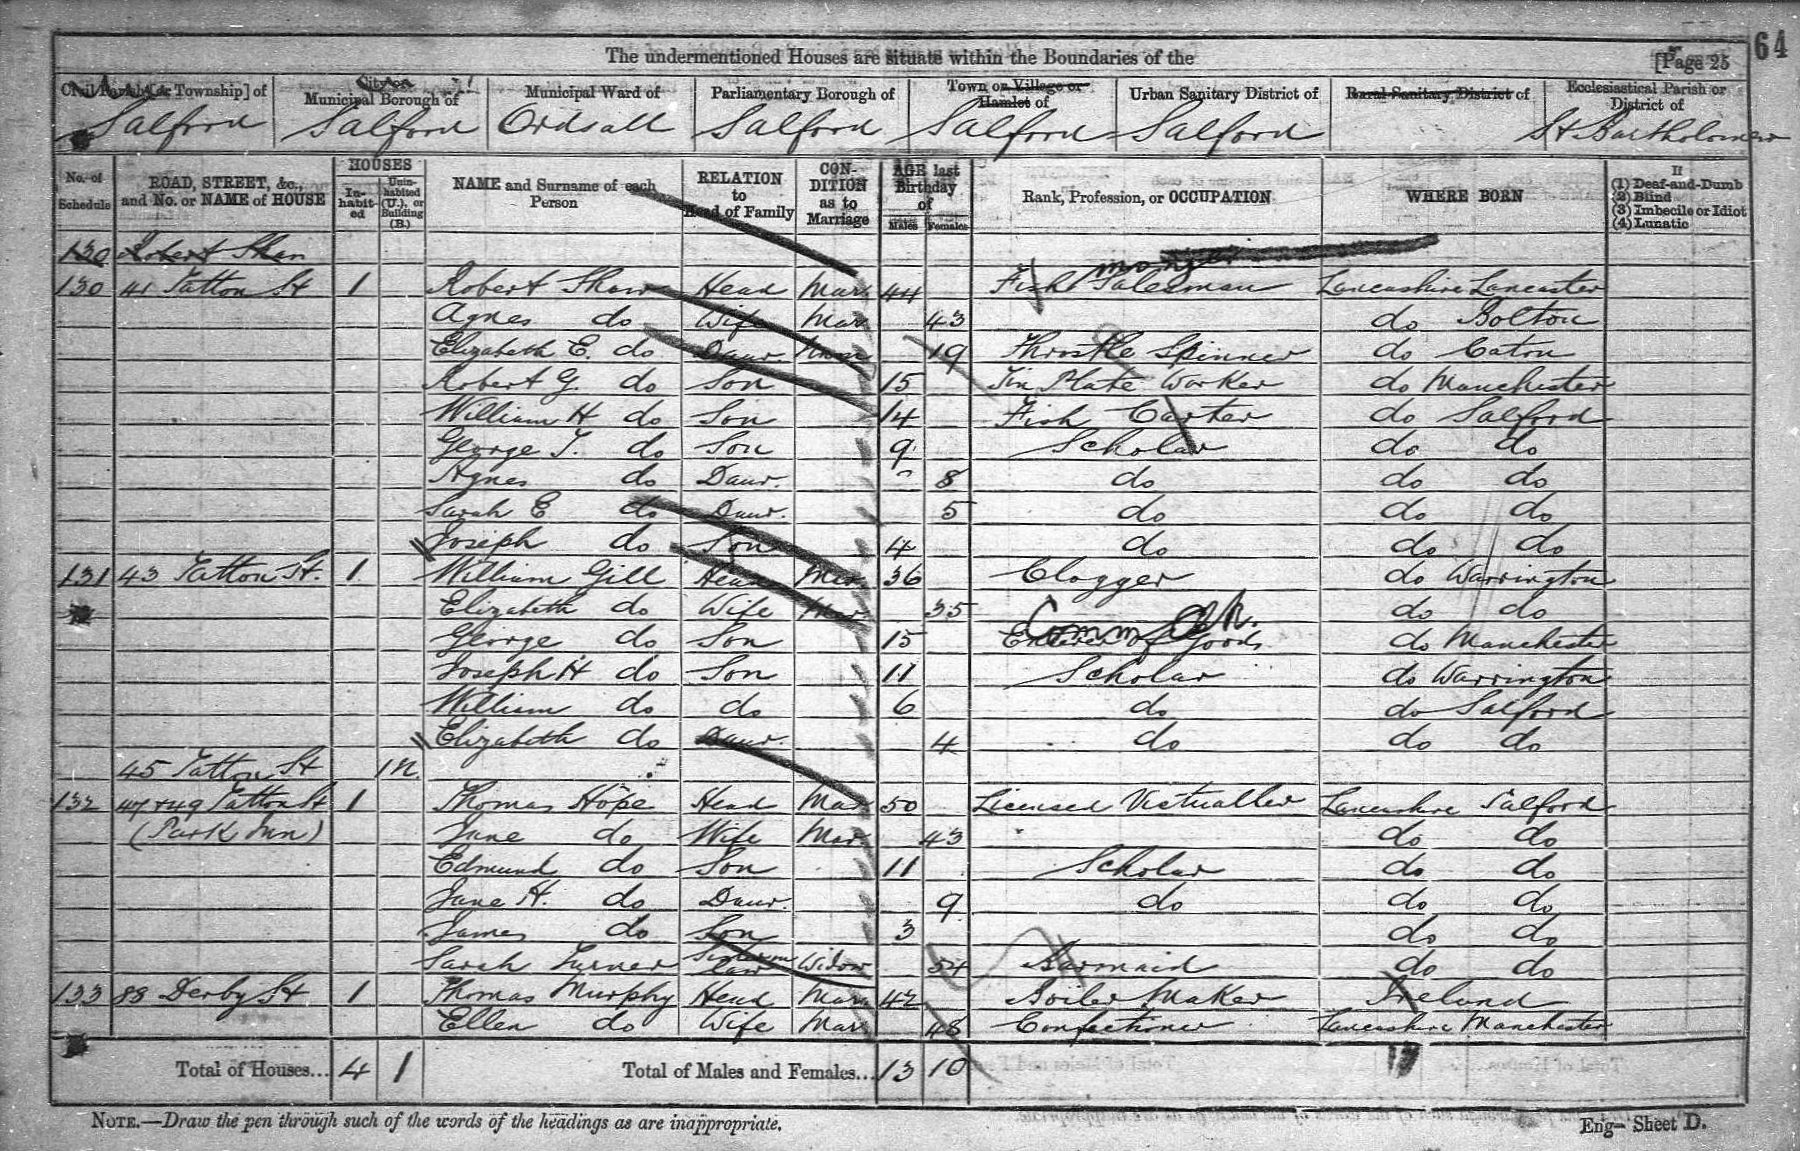 The undermentioned Houses are situate within the Boundaries of the
[Page 25
64
Civil Parish [or Township] of
City or
Municipal Borough of
Municipal Ward of
Parliamentary Borough of
Town or Village or Hamlet of
Urban Sanitary District of
Rural Sanitary District of
Ecclesiastical Parish or District of
Salford Salford Ordsall Salford Salford Salford St Bartholomew
No. of Schedule
ROAD, STREET, &c., and No. or NAME of HOUSE
HOUSES
In-habit-ed
Unin-habited (U.), or Building (B.)
NAME and Surname of each Person
RELATION to Head of Family
CON-DITION as to Marriage
AGE last Birthday of
Males Females
Rank, Profession, or OCCUPATION
WHERE BORN
If
(1) Deaf-and-Dumb
(2) Blind
(3) Imbecile or Idiot
(4) Lunatic
130 Robert Shaw
monger
130 41 Tatton St 1 Robert Shaw Head Mar 44 Fish Salesman Lancashire Lancaster
Agnes do Wife Mar 43 do Bolton
Elizabeth E. do Daur Unm 19 Throstle Spinner do Caton
Robert G. do Son 15 Tin Plate Worker do Manchester
William H do Son 14 Fish Carter do Salford
George T. do Son 9 Scholar do do
Agnes do Daur. 8 do do do
Sarah E do Daur. 5 do do do
Joseph do Son 4 do do do
131 43 Tatton St. 1 William Gill Head Mar 36 Clogger do Warrington
Elizabeth do Wife Mar 35 do do
Comm Clk.
George do Son 15 Enterer of Goods do Manchester
Joseph H do Son 11 Scholar do Warrington
William do do 6 do do Salford
Elizabeth do Daur. 4 do do do
45 Tatton St 1 U.
132 47 & 49 Tatton St 1 Thomas Hope Head Mar 50 Licensed Victualler Lancashire Salford
(Park Inn) Jane do Wife Mar 43 do do
Edmund do Son 11 Scholar do do
Jane H. do Daur. 9 do do do
James do Son 3 do do
Sarah Turner Sister in law Widow 54 Barmaid do do
133 88 Derby St 1 Thomas Murphy Head Mar 42 Boiler Maker Ireland
Ellen do Wife Mar 48 Confectioner Lancashire Manchester
Total of Houses... 4 1 Total of Males and Females... 13 10
NOTE.—Draw the pen through such of the words of the headings as are inappropriate.
Eng— Sheet D.